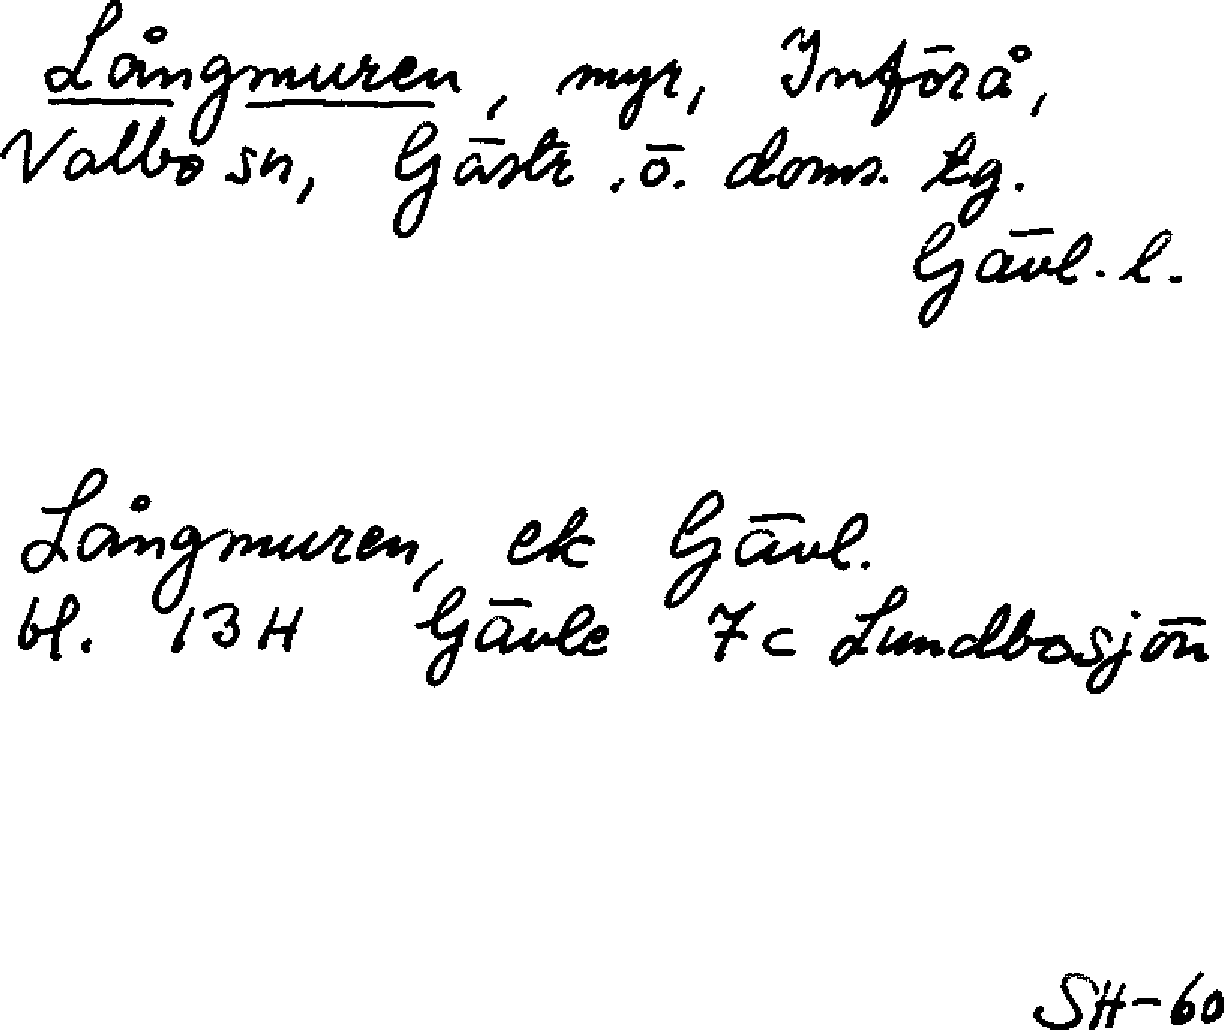 Långmuren, myr, Införå,
Valbo sn, Gästr. ö. doms. tg.
Gävl. l.
Långmuren, ek Gävl.
bl. 13H Gävle 7c Lundbosjön
SH-60